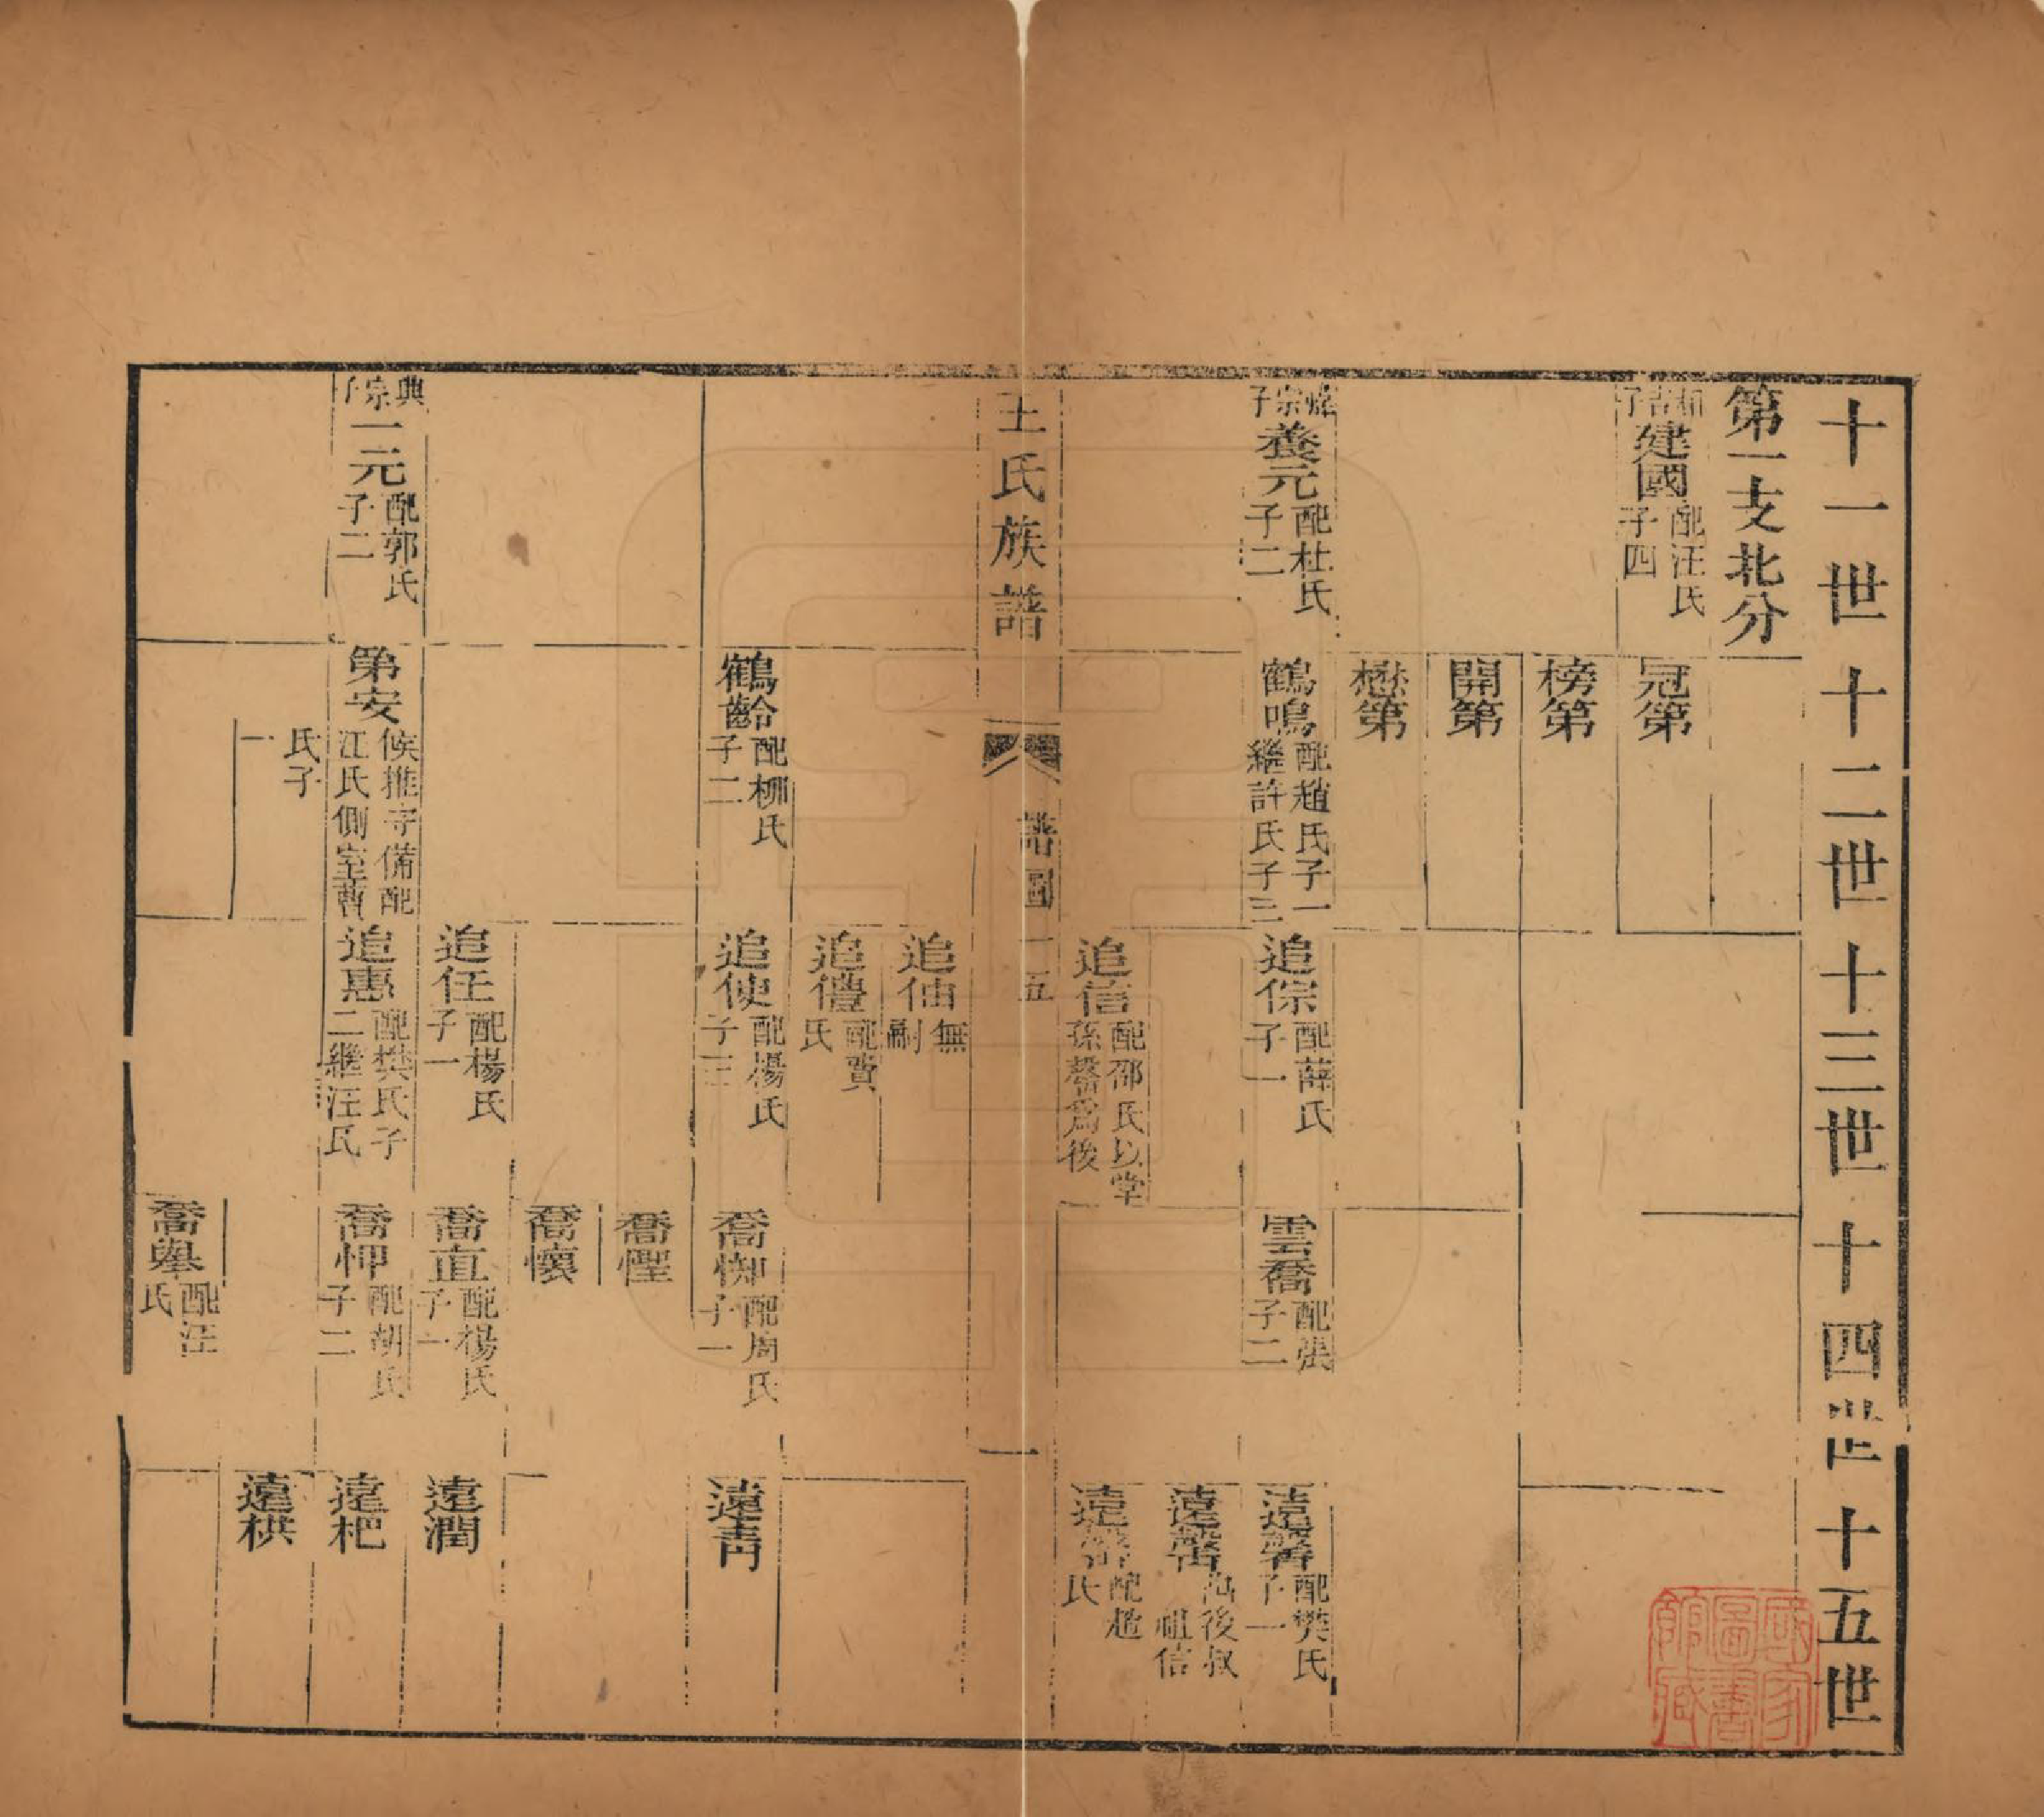 十一世 十二世 十三世 十四世 十五世
第一支北分
子建國配汪氏子四
冠第
榜第
開第
懋第
宗子養元配杜氏子二
鶴鳴配趙氏子一繼許氏子三
追倧配薛氏子一
雲喬配張子二
遠馨配樊氏子一
遠 後叔祖信
遠 配趙氏
追信配邵氏以堂孫馨爲後
王氏族譜
譜圖
一五
一
追伷無嗣
追禮配費氏
鶴齡配柳氏子二
追使配楊氏子三
喬 配周氏子一
遠青
喬慳
喬懷
追任配楊氏子一
喬直配楊氏子一
遠潤
典宗子一元配郭氏子二
第安候推守備配江氏側室曹氏子一
追惠配樊氏子二繼汪氏
喬忡配胡氏子二
遠杷
遠栱
喬舉配汪氏
國家圖書館藏